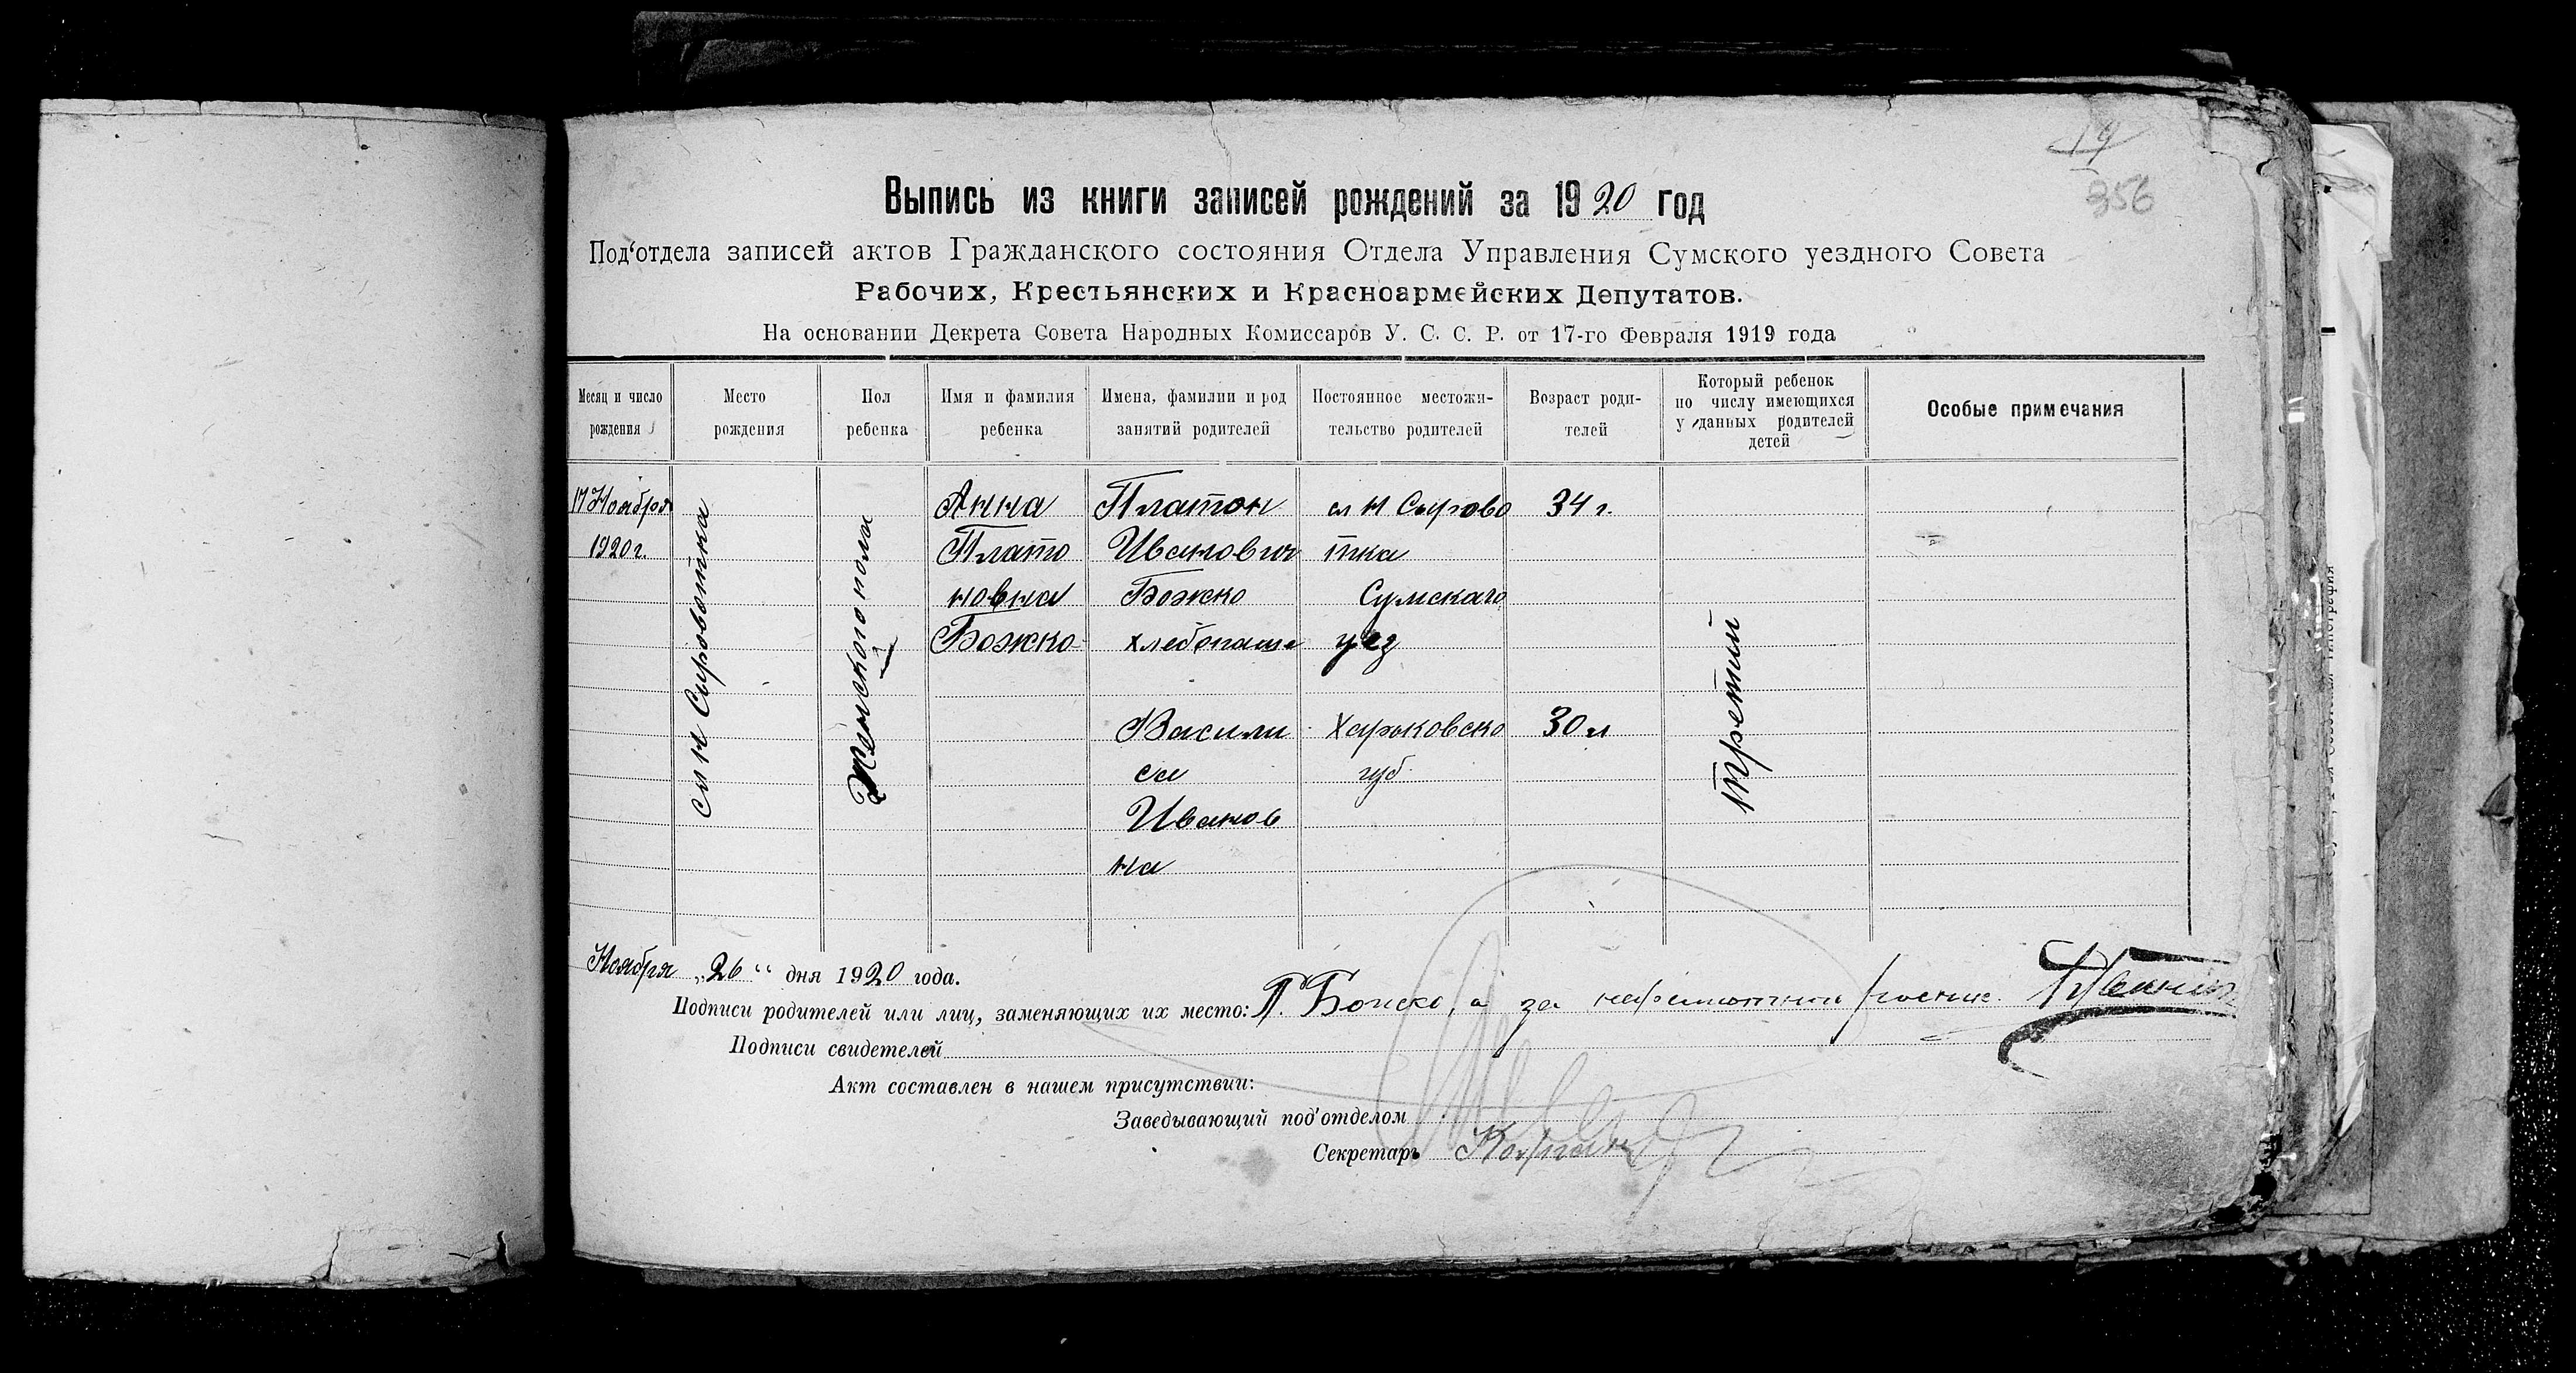 19
356
Выпись из книги записей рождений за 1920 год
Под'отдела записей актов Гражданского состояния Отдела Управления Сумского уездного Совета
Рабочих, Крестьянских и Красноармейских Депутатов.
На основании Декрета Совета Народных Комиссаров У. С. С. Р. от 17-го Февраля 1919 года
Месяц и число рождения
Место рождения
Пол ребенка
Имя и фамилия ребенка
Имена, фамилии и род занятий родителей
Постоянное местожительство родителей
Возраст родителей
Который ребенок по числу имеющихся у данных родителей детей
Особые примечания
17 Ноября
1920 г.
сл Н Сыроватка
Женского пола
Анна
Плато
новна
Божко
Платон
Иванович
Божко
хлебопаше
Васили
са
Иванов
на
сл Н Сырова
тка
Сумскаго
уез
Харьковско
губ
34 г.
30 л
третий
Ноября „26“ дня 1920 года.
Подписи родителей или лиц, заменяющих их место: П. Божко, а за неграмотного
Подписи свидетелей
Акт составлен в нашем присутствии:
Заведывающий под'отделом
Секретарь